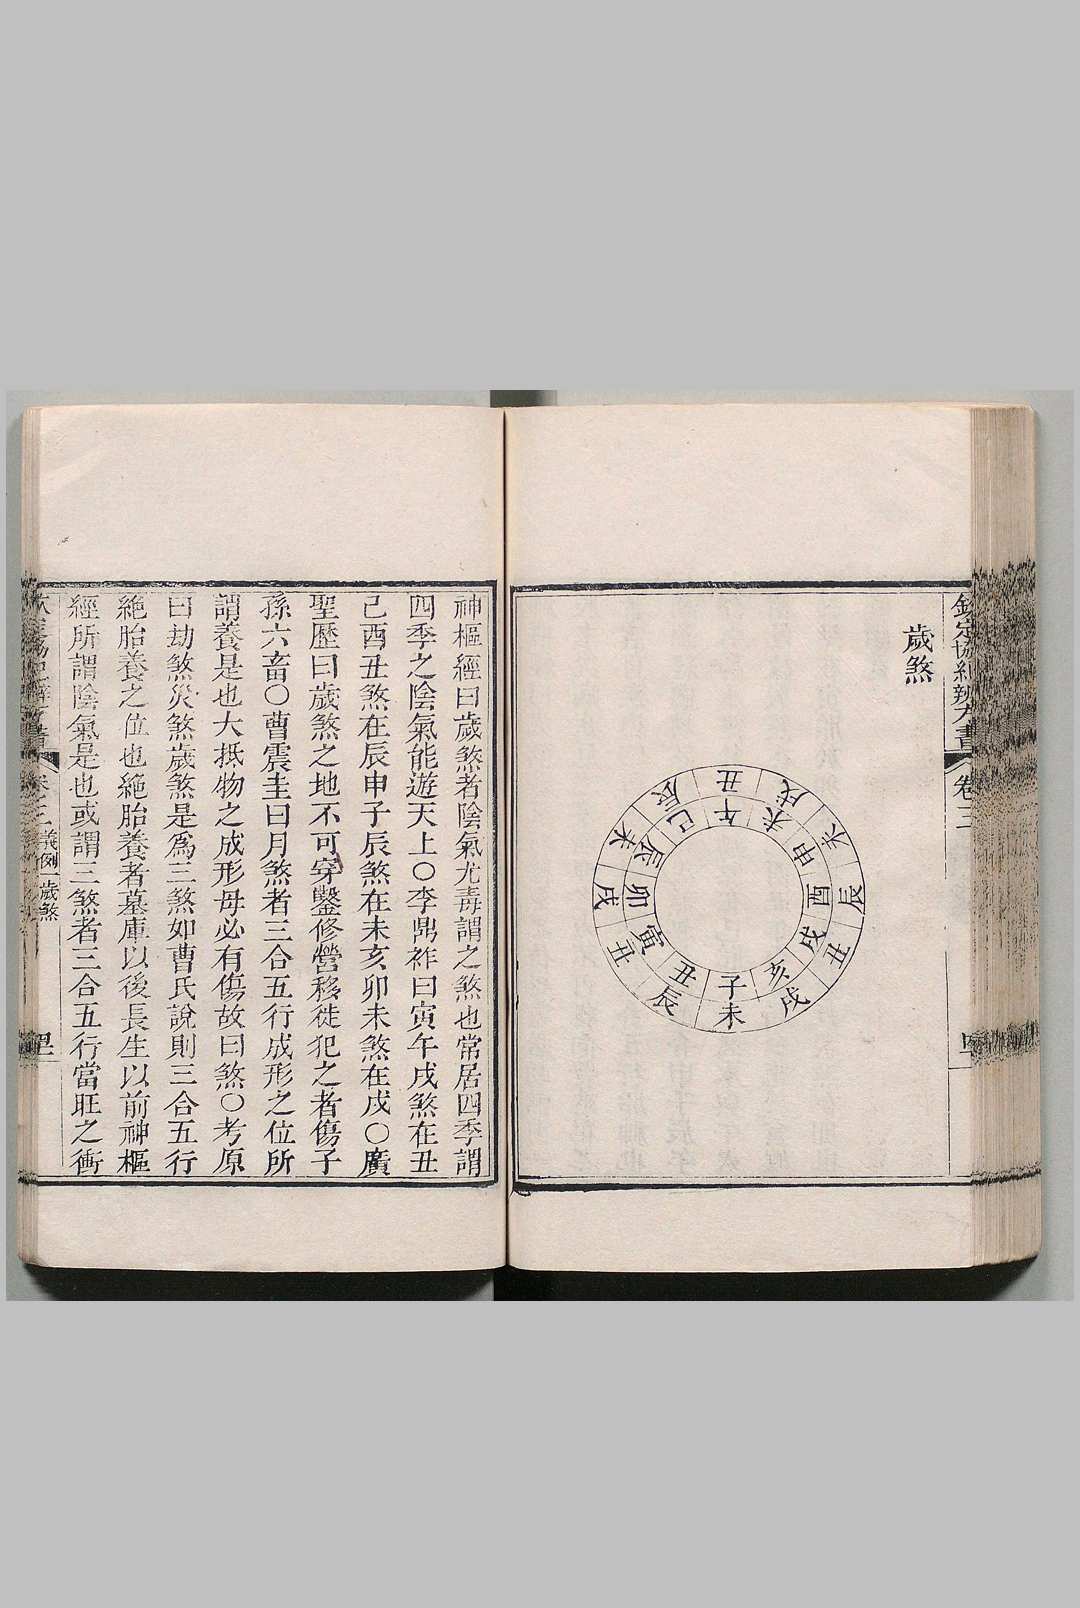 欽定協紀辨方書
卷三
歲煞
子未
丑辰
寅丑
卯戌
辰未
巳辰
午丑
未戌
申未
酉辰
戌丑
亥戌
神樞經曰歲煞者陰氣尤毒謂之煞也常居四季謂
四季之陰氣能遊天上○李鼎祚曰寅午戌煞在丑
巳酉丑煞在辰申子辰煞在未亥卯未煞在戌○廣
聖歷曰歲煞之地不可穿鑿修營移徙犯之者傷子
孫六畜○曹震圭曰月煞者三合五行成形之位所
謂養是也大抵物之成形母必有傷故曰煞○考原
曰劫煞災煞歲煞是爲三煞如曹氏說則三合五行
絶胎養之位也絶胎養者墓庫以後長生以前神樞
經所謂陰氣是也或謂三煞者三合五行當旺之衝
卷三 義例一歲煞